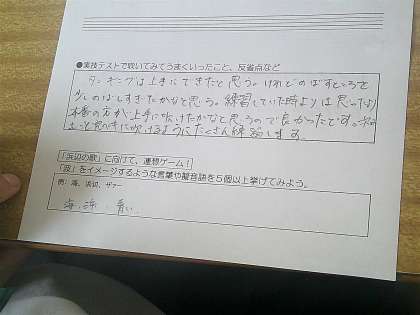 ●実技テストで吹いてみてうまくいったこと、反省点など
タンギングは上手にできたと思う。けれどのばすところを
少しのばしすぎたかなと思う。練習していた時よりは思ったより
本番の方が上手に吹けたかなと思うので良かったです。
吹けるようにたくさん練習します。
「浜辺の歌」に向けて、連想ゲーム！
「波」をイメージするような言葉や擬音語を５個以上挙げてみよう。
例：海、浜辺、ザァー
海、浜、青い